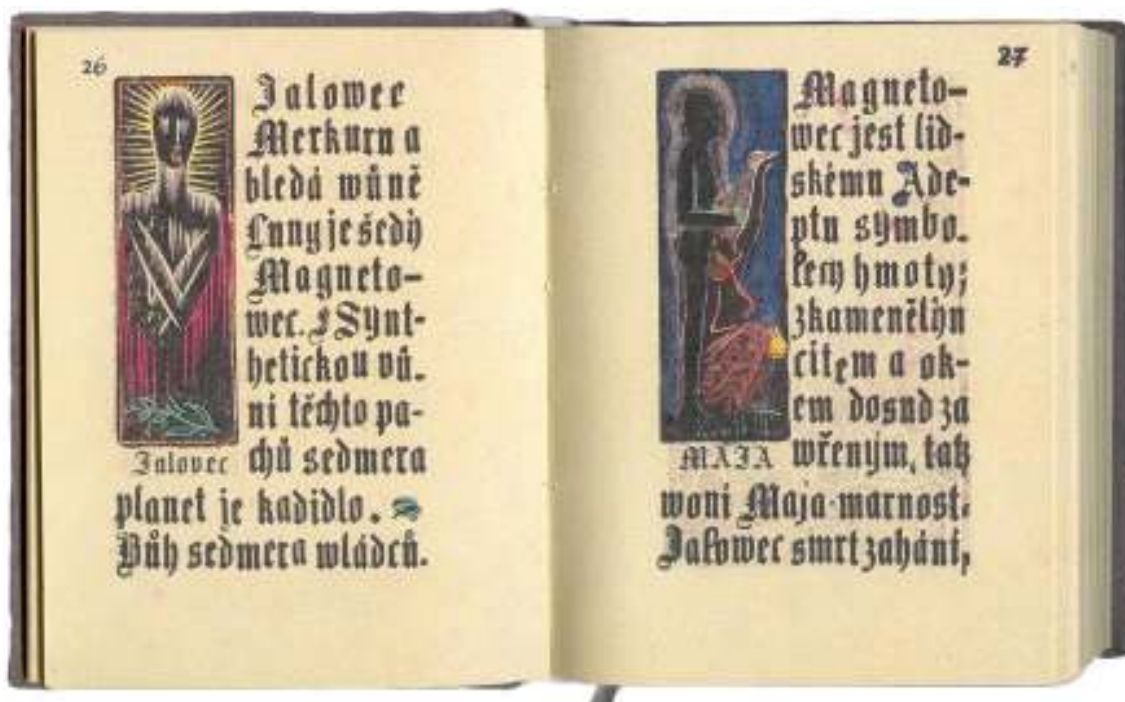 26
Jalowec
Merkuru a
hledá wůně
Luny je šedý
Magneto-
wec. Synt-
hetickou vů-
ni těchto pa-
chů sedmera
planet je kadidlo.
Bůh sedmera wládců.
Jalovec
27
Magneto-
wec jest lid-
skému Ade-
ptu symbo-
lem hmoty;
zkamenělým
citem a ok-
em dosud za
wřeným, tak
woní Maja-marnost.
Jalowec smrt zahání,
MAJA